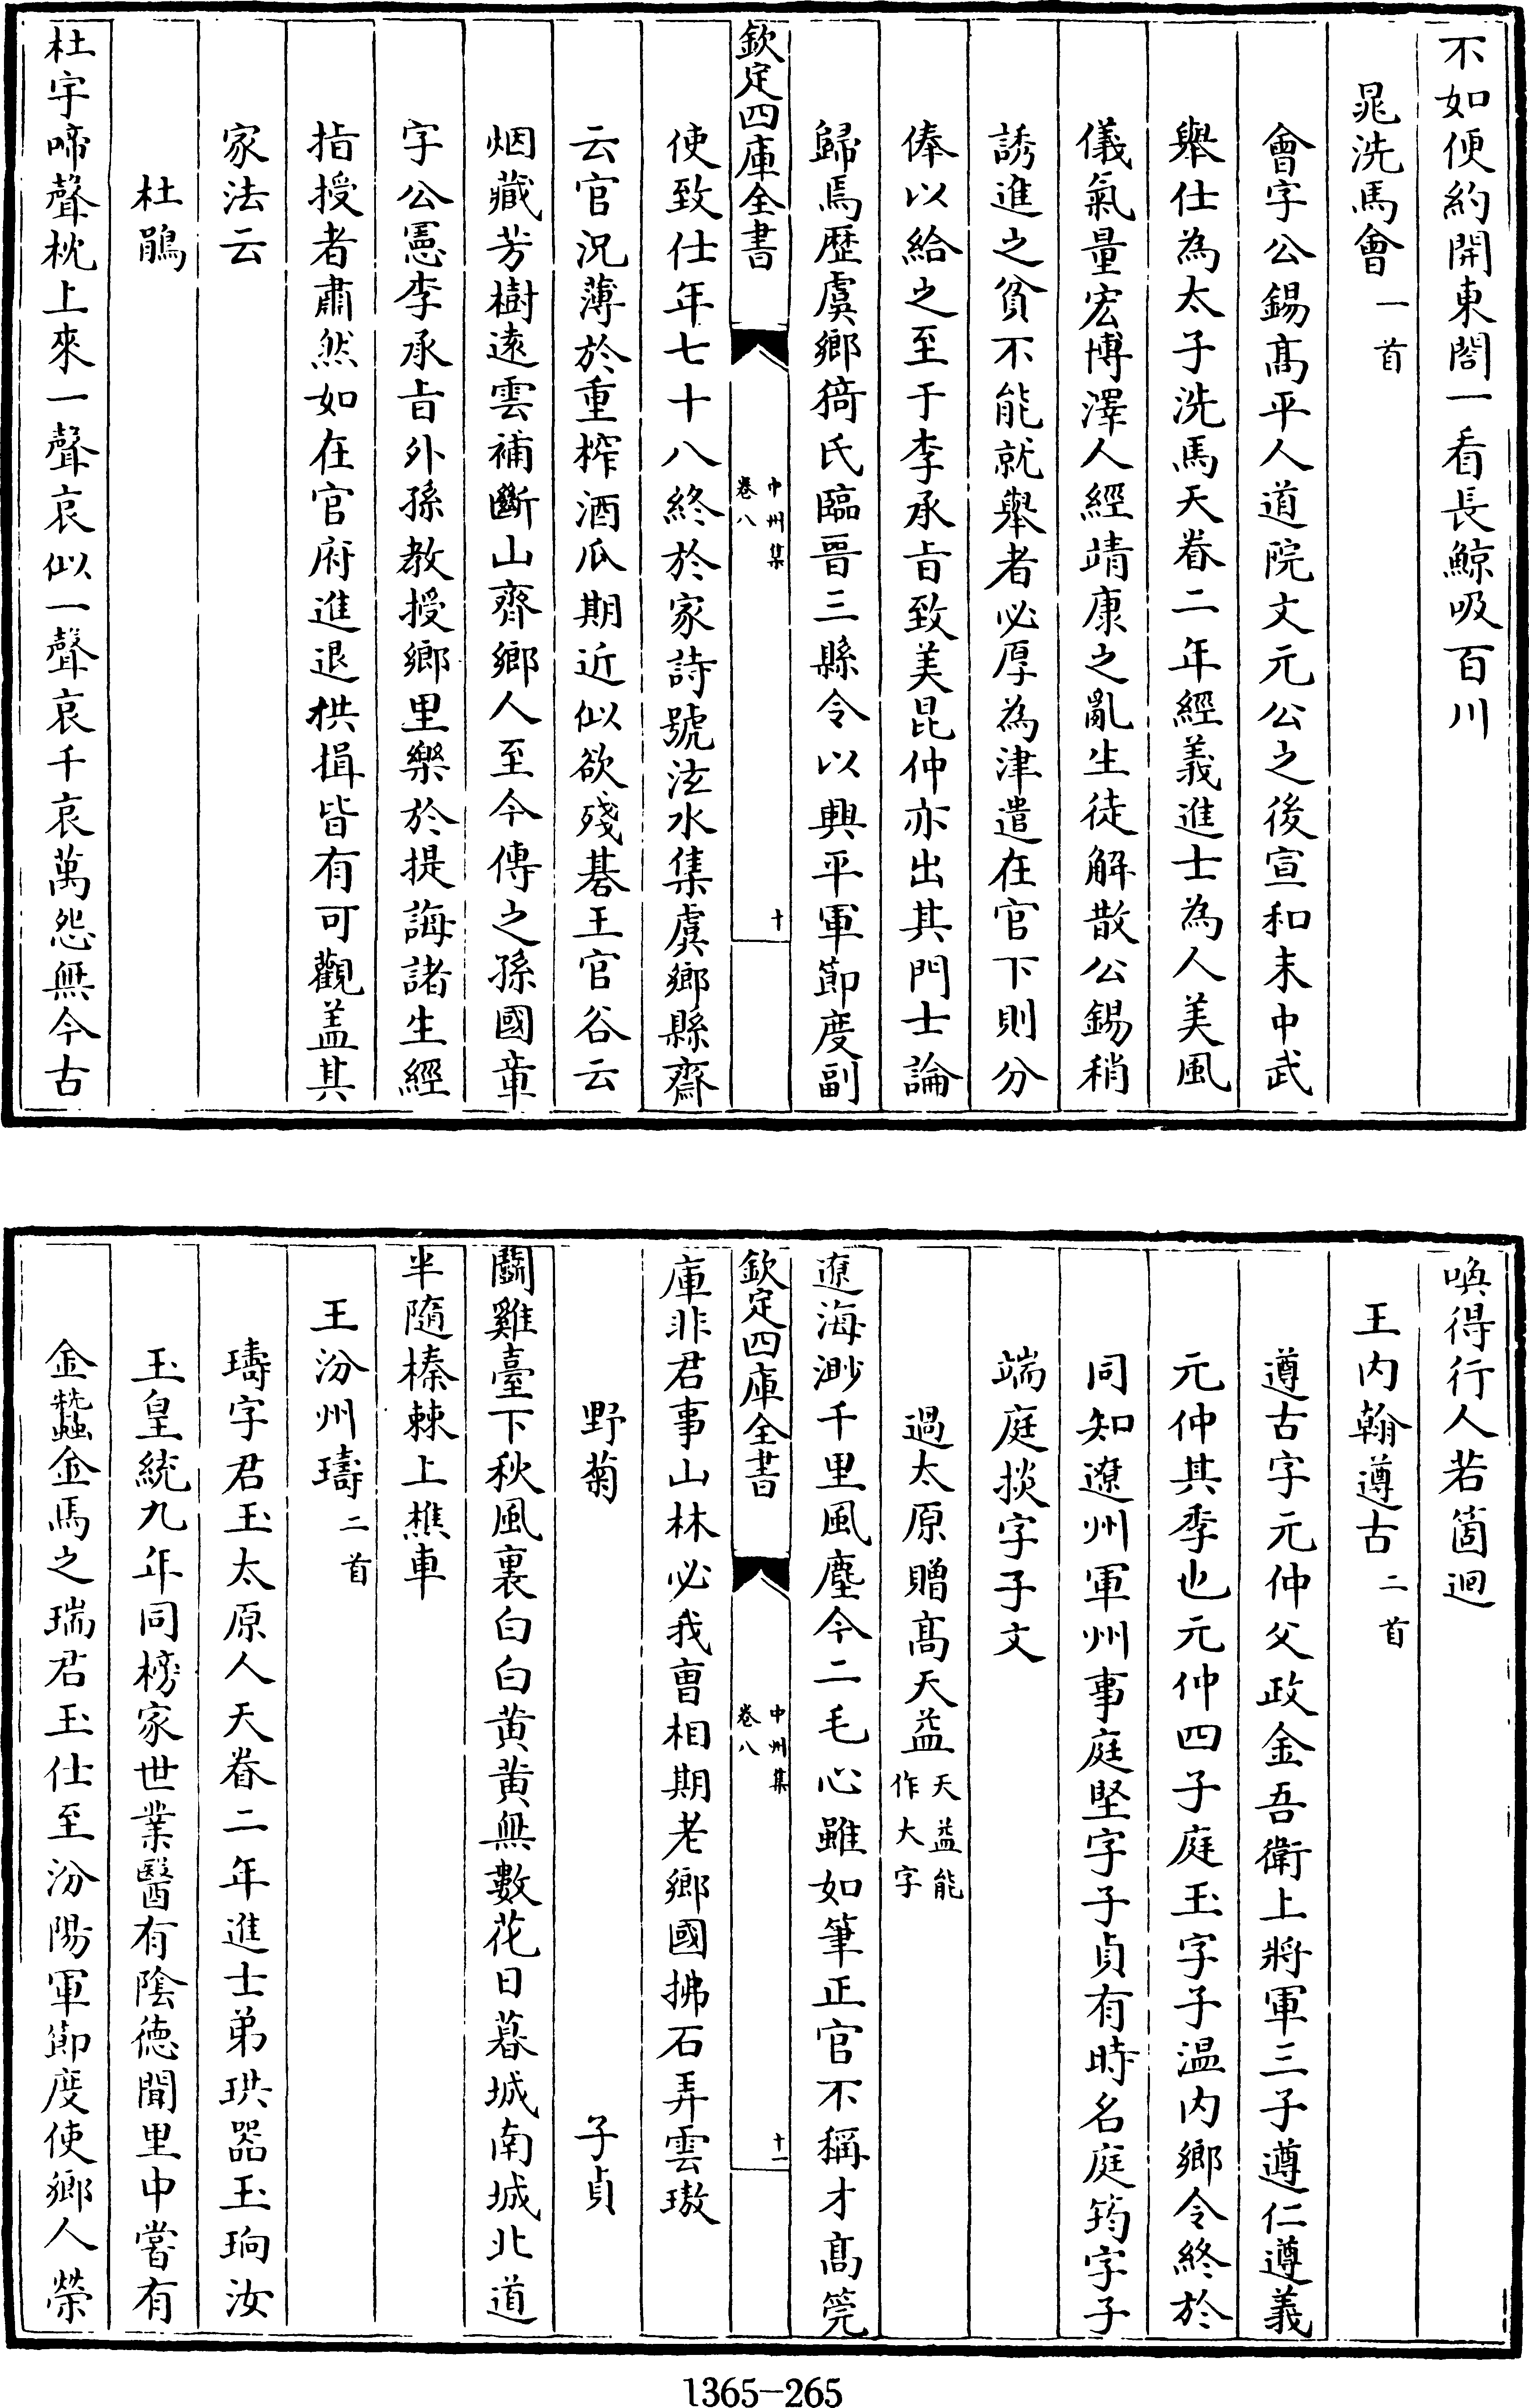 不如便約開東閤一看長鯨吸百川
晁洗馬會一首
會字公錫髙平人道院文元公之後宣和末中武
舉仕為太子洗馬天眷二年經義進士為人美風
儀氣量宏博澤人經靖康之亂生徒解散公錫稍
誘進之貧不能就舉者必厚為津遣在官下則分
俸以給之至于李承旨致美昆仲亦出其門士論
歸焉歴虞鄉猗氏臨晉三縣令以興平軍節度副
欽定四庫全書
中州集
卷八
十
使致仕年七十八終於家詩號泫水集虞鄉縣齋
云官況薄於重榨酒瓜期近似欲殘碁王官谷云
烟藏芳樹逺雲補斷山齊鄉人至今傳之孫國章
字公憲李承旨外孫教授鄉里樂於提誨諸生經
指授者肅然如在官府進退拱揖皆有可觀盖其
家法云
杜鵑
杜宇啼聲枕上來一聲哀似一聲哀千哀萬怨無今古
喚得行人若箇迴
王内翰遵古二首
遵古字元仲父政金吾衛上將軍三子遵仁遵義
元仲其季也元仲四子庭玉字子温内鄉令終於
同知遼州軍州事庭堅字子貞有時名庭筠字子
端庭掞字子文
過太原贈髙天益天益能
作大字
遼海渺千里風塵今二毛心雖如筆正官不稱才髙筦
欽定四庫全書
中州集
卷八
十一
庫非君事山林必我曹相期老鄉國拂石弄雲璈
野菊 子貞
鬬雞臺下秋風裏白白黄黄無數花日暮城南城北道
半隨榛棘上樵車
王汾州璹二首
璹字君玉太原人天眷二年進士弟珙器玉珦汝
玉皇統九年同榜家世業醫有隂徳聞里中嘗有
金蠶金馬之瑞君玉仕至汾陽軍節度使鄉人榮
1365-265